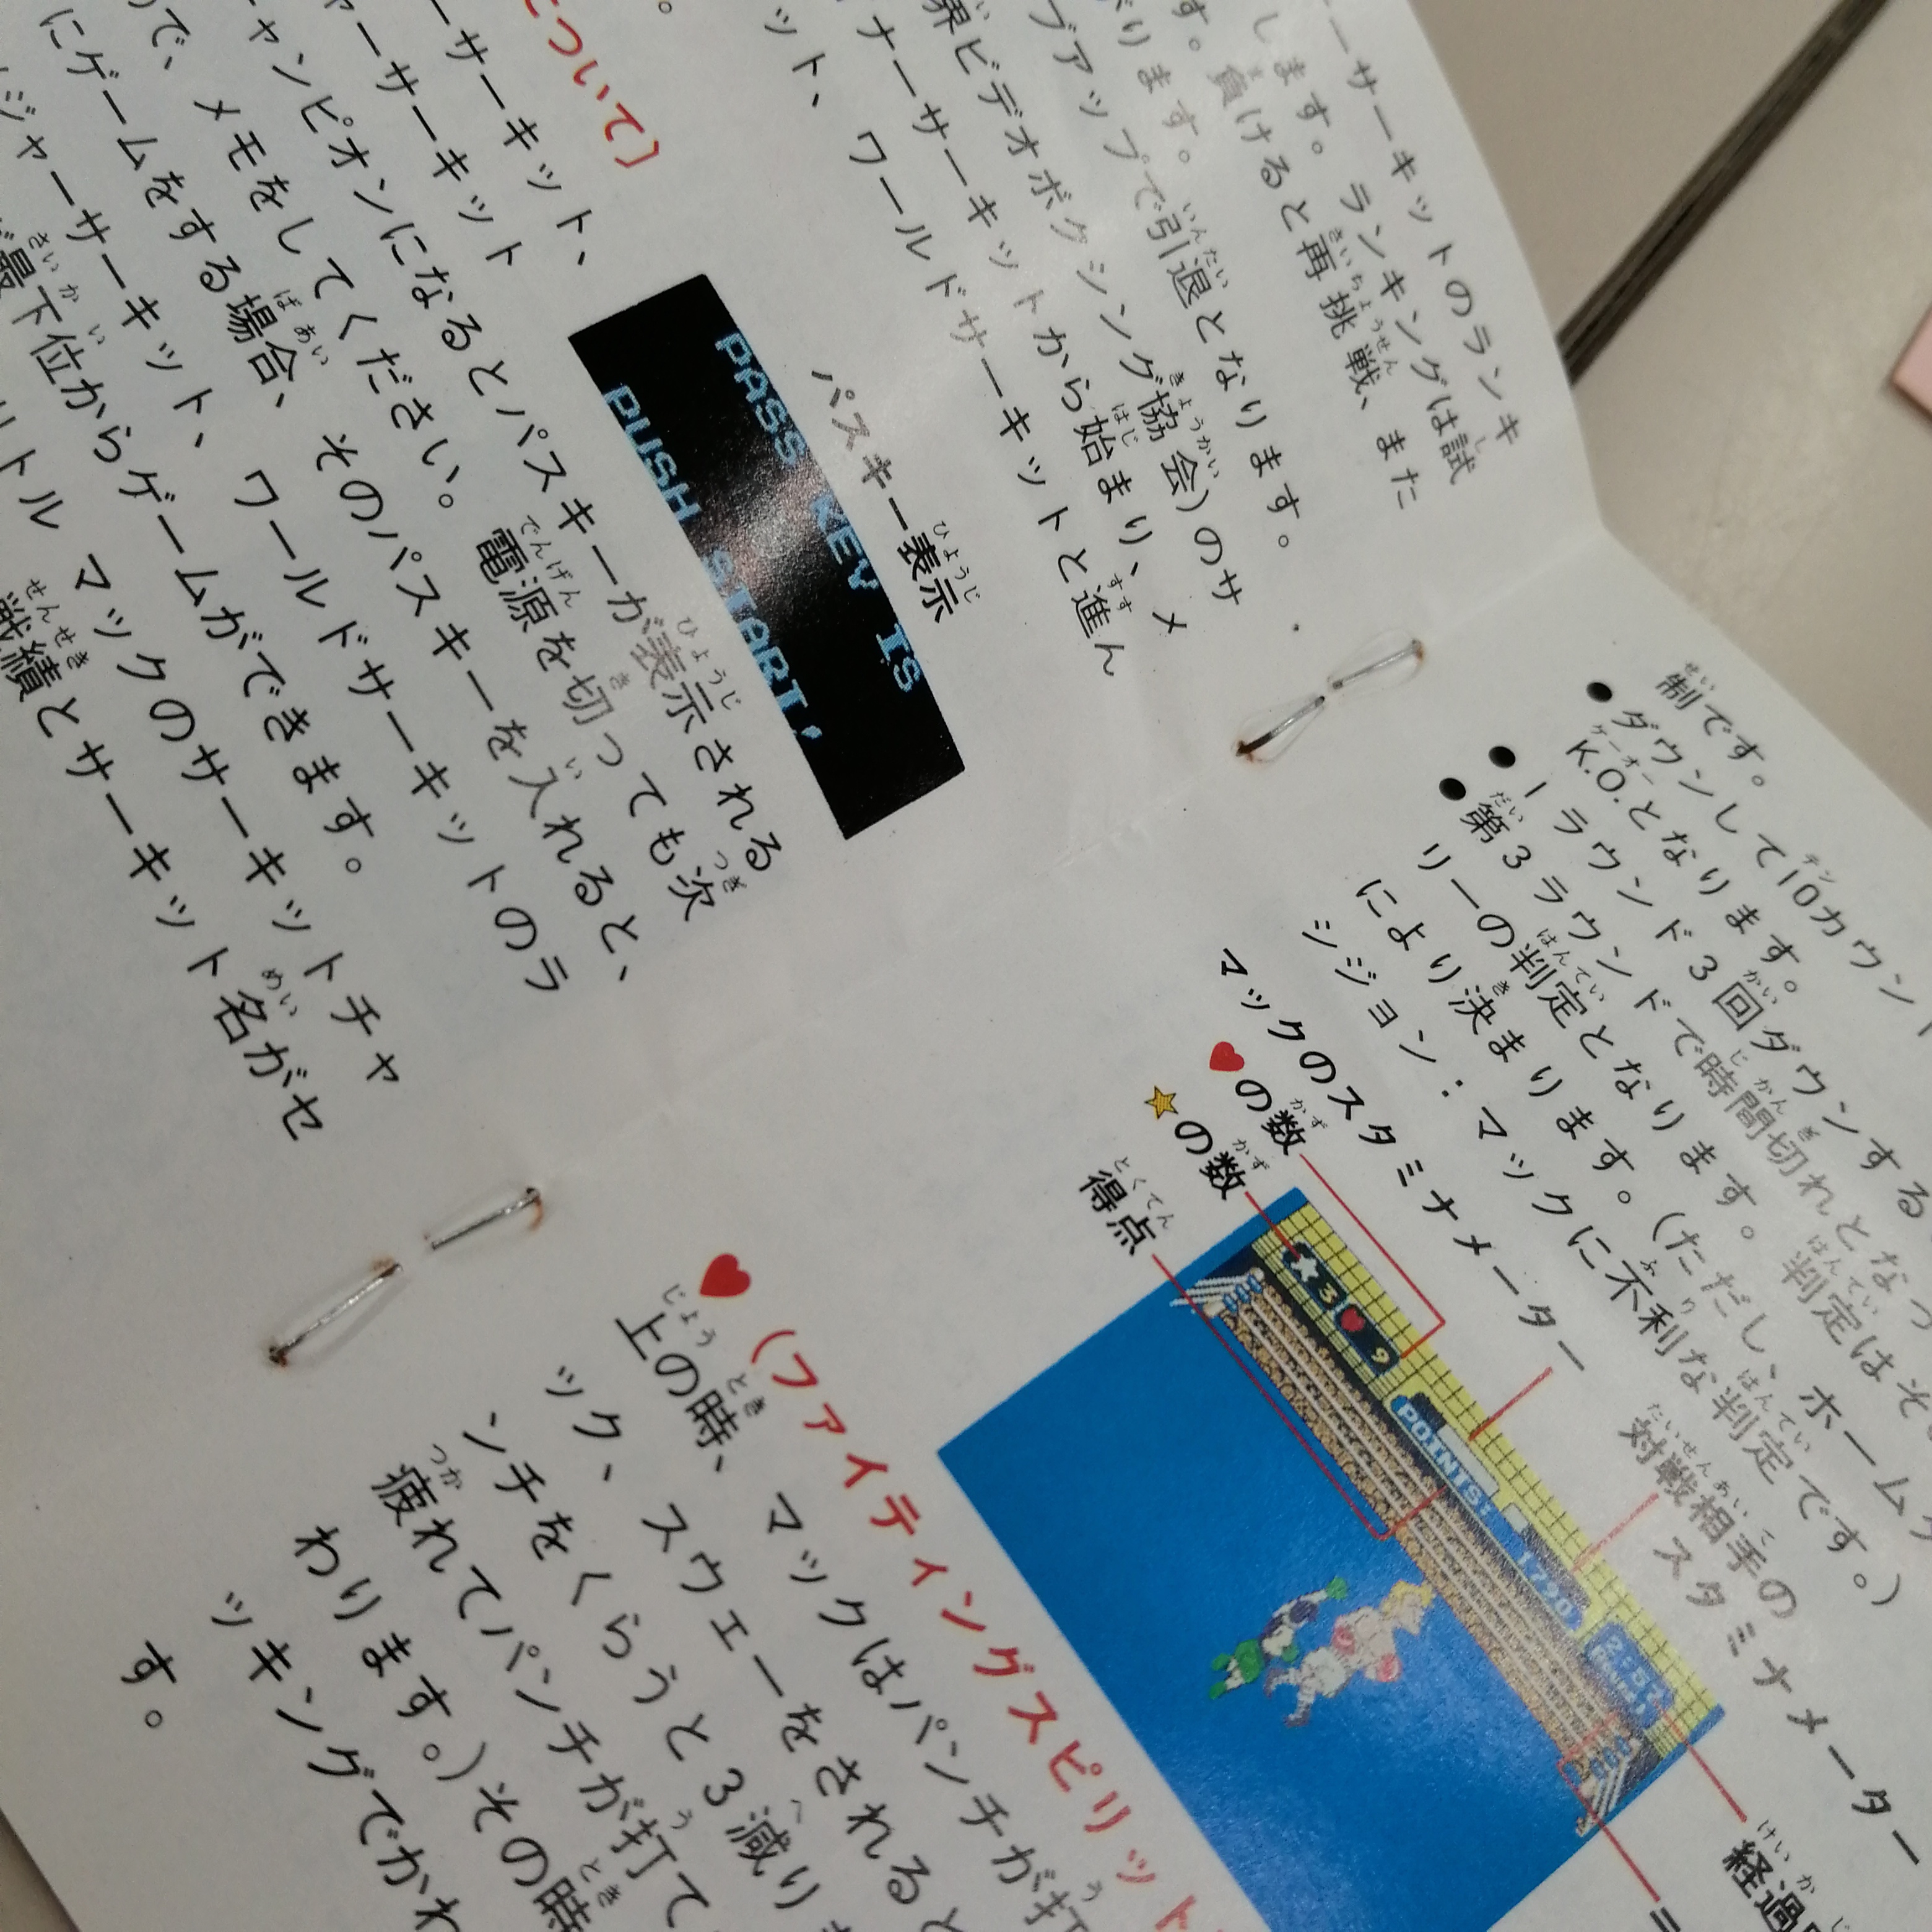 ーサーキットのランキ
します。ランキングは試
す。負けると再挑戦、また
がります。
ブアップで引退となります。
界ビデオボクシング協会)のサ
ナーサーキットから始まり、メ
ット、ワールドサーキットと進ん
。
パスキー表示
PASS KEY IS
PUSH START,
について〕
ーサーキット、
ャーサーキット
ャンピオンになるとパスキーが表示される
で、メモをしてください。電源を切っても次
にゲームをする場合、そのパスキーを入れると、
ジャーサーキット、ワールドサーキットのラ
最下位からゲームができます。
リトル マックのサーキットチャ
戦績とサーキット名がセ
制です。
●ダウンして10カウント
K.O.となります。
●1ラウンド3回ダウンする
●第3ラウンドで時間切れとなっ
リーの判定となります。判定はそ
により決まります。(ただし、ホーム
シジョン:マックに不利な判定です。)
マックのスタミナメーター
♥の数
★の数
得点
対戦相手の
スタミナメーター
★3♥9
POINTS
1790
経過
♥(ファイティングスピリット
上の時、マックはパンチが打
ック、スウェーをされると
ンチをくらうと3減り
疲れてパンチが打て
わります。)その時
ッキングでかわ
す。